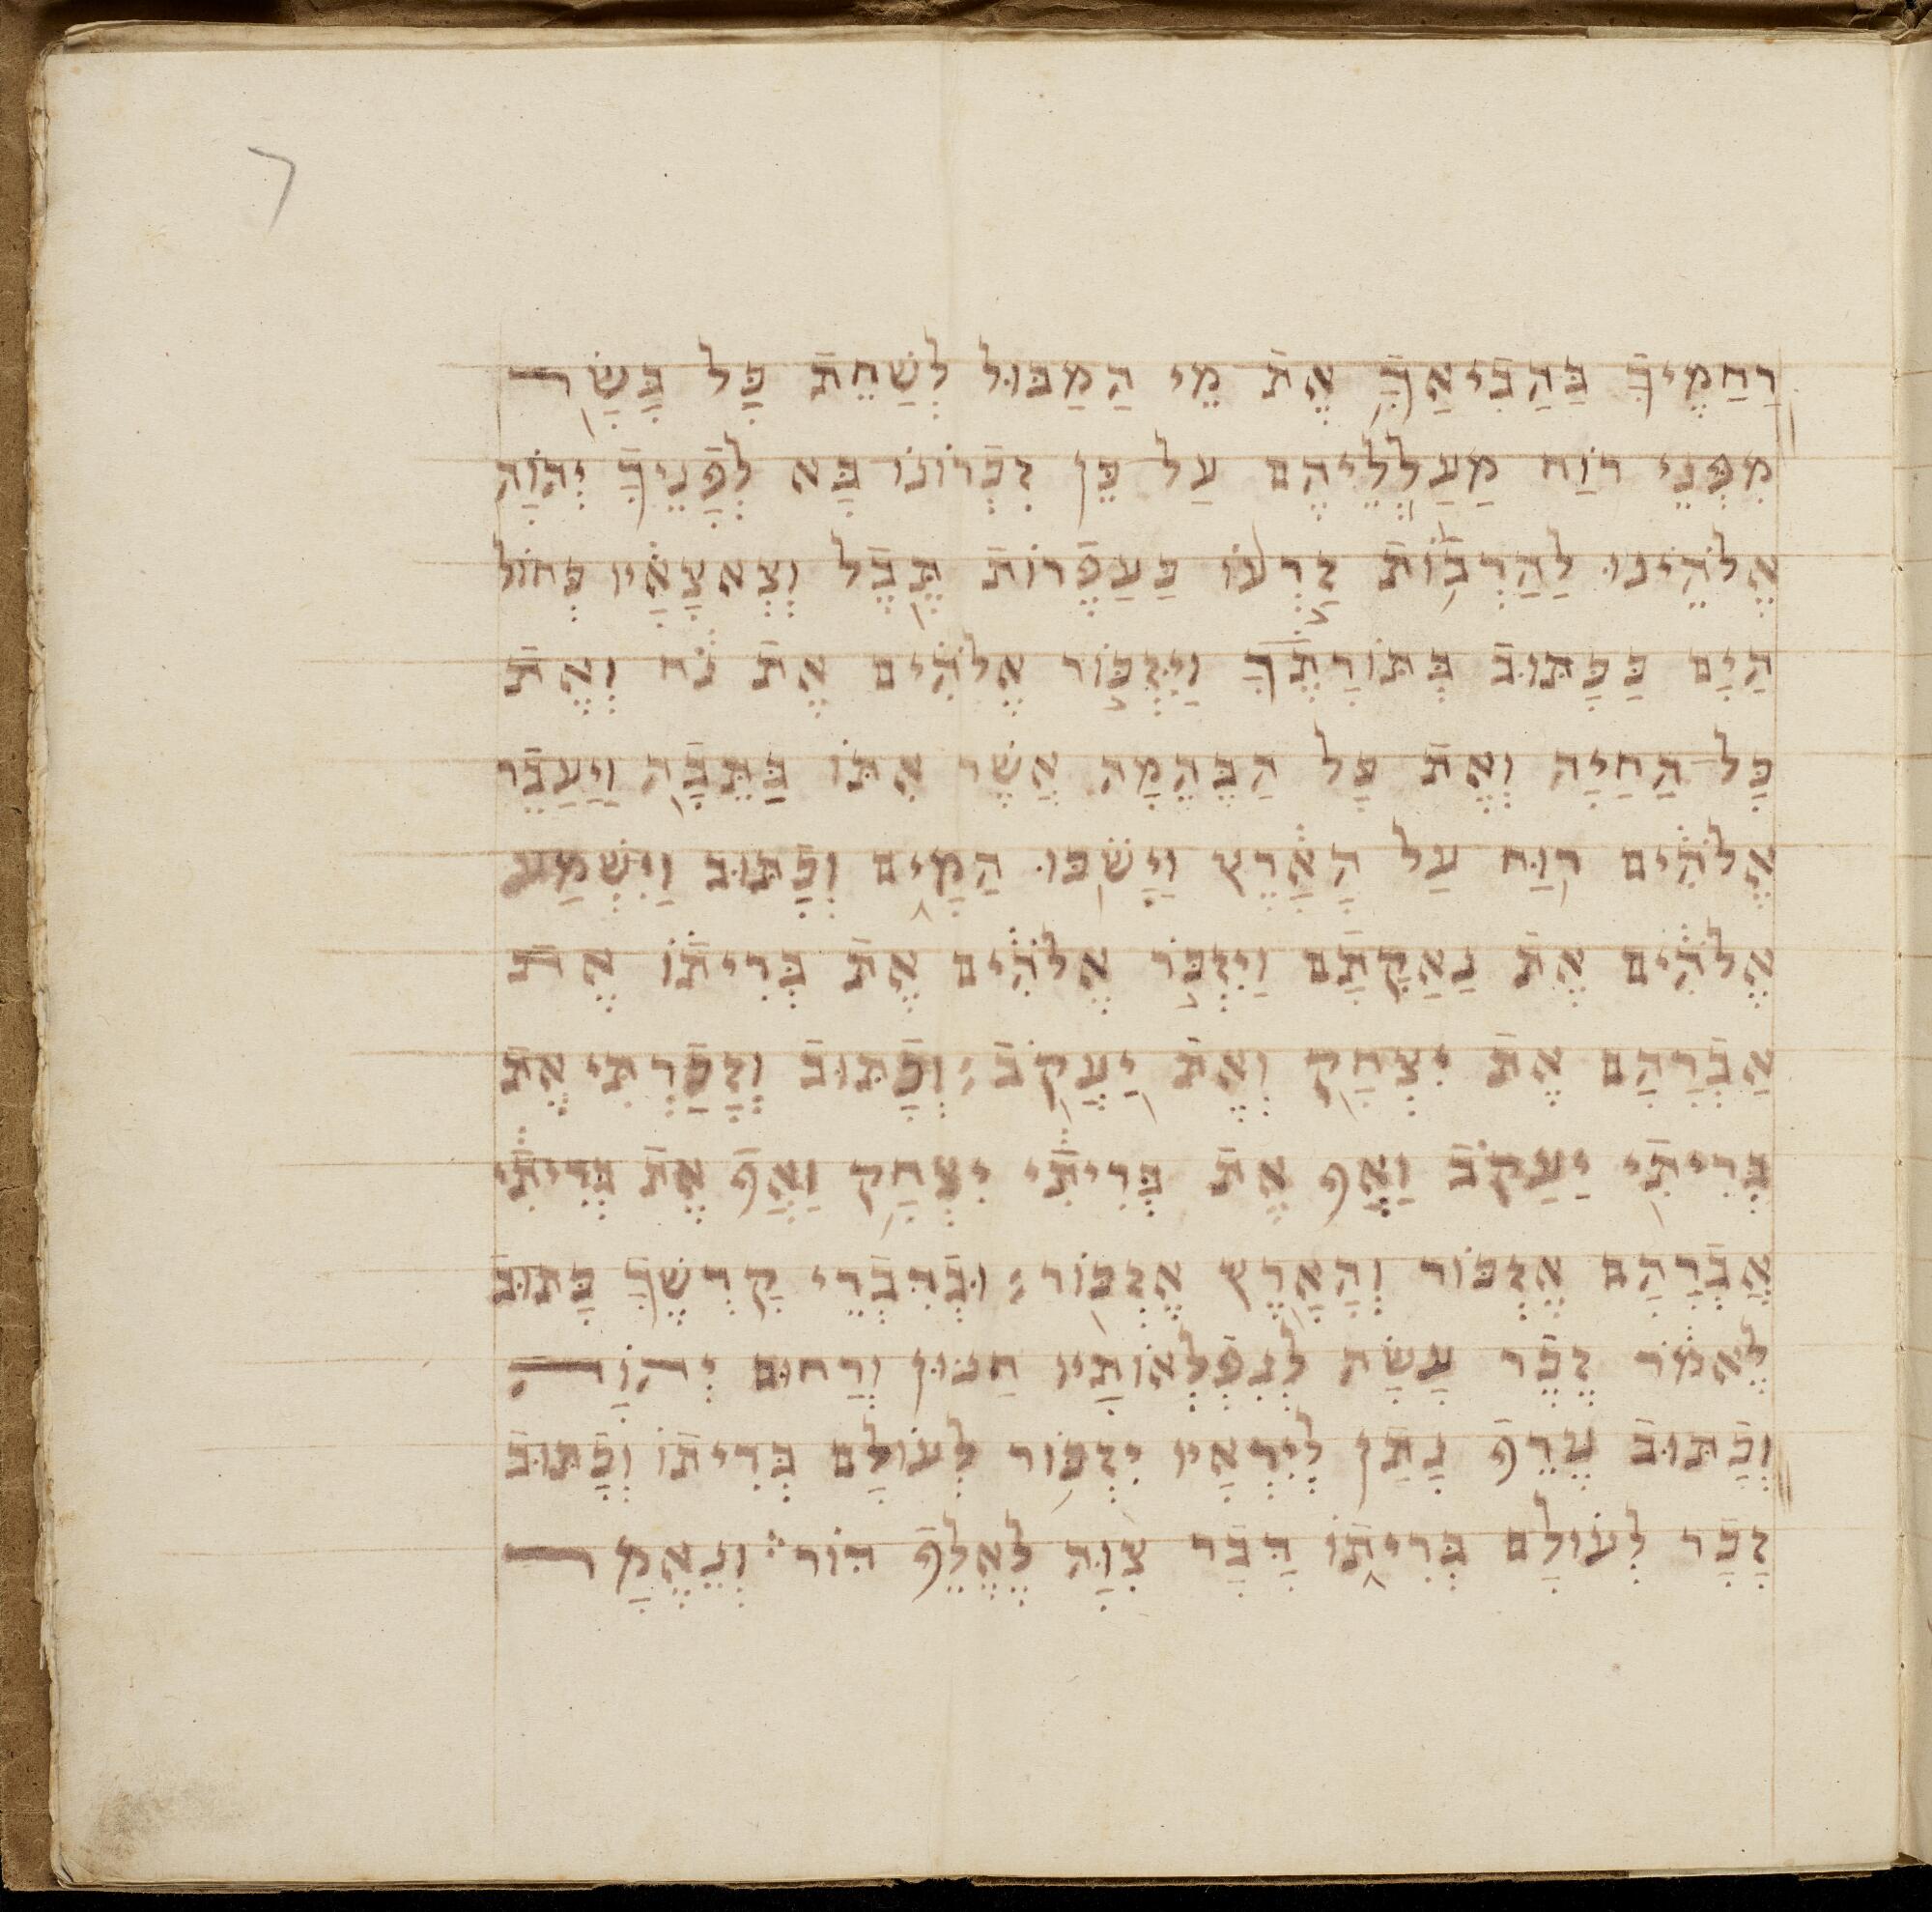 7
רַחֲמֶיךָ בַּהֲבִיאֲךָ אֶת מֵי הַמַבּוּל לְשַׁחֵת כָּל בָּשָׂר
מִפְּנֵי רוֹעַ מַעַלְלֵיהֶם עַל כֵּן זִכְרוֹנוֹ בָּא לְפָנֶיךָ יְהוָֹה
אֱלֹהֵינוּ לְהַרְבּוֹת זַרְעוֹ כְּעַפְרוֹת תֵּבֵל וְצֶאֱצָאָיו כְּחוֹל
הַיָם כַּכָּתוּב בְּתוֹרָתֶךָ וַיִּזְכּוֹר אֱלֹהִים אֶת נֹחַ וְאֶת
כָּל הַחַיָה וְאֶת כָּל הַבְּהֵמָה אֲשֶׁר אִתּוֹ בַּתֵּבָה וַיַעֲבֵר
אֱלֹהִים רוּחַ עַל הָאָרֶץ וַיָשֹׁכּוּ הַמָיִם וְכָתוּב וַיִשְׁמַע
אֱלֹהִים אֶת נַאֲקָתָם וַיִזְכֹּר אֱלֹהִים אֶת בְּרִיתוֹ אֶת
אַבְרָהָם אֶת יִצְחָק וְאֶת יַעֲקֹב: וְכָתוּב וְזָכַרְתִּי אֶת
בְּרִיתִי יַעֲקֹב וְאַף אֶת בְּרִיתִי יִצְחָק וְאַף אֶת בְּרִיתִי
אַבְרָהָם אֶזְכּוֹר וְהָאָרֶץ אֶזְכּוֹר: וּבְדִבְרֵי קָדְשֶׁךָ כָּתוּב
לֵאמֹר זֵכֶר עָשָׂה לְנִפְלְאוֹתָיו חַנּוּן וְרַחוּם יְהוָֹה
וְכָתוּב טֶרֶף נָתַן לִירֵאָיו יִזְכּוֹר לְעוֹלָם בְּרִיתוֹ וְכָתוּב
זָכַר לְעוֹלָם בְּרִיתוֹ דָּבָר צִוָּה לְאֶלֶף דּוֹר: וְנֶאֱמַר